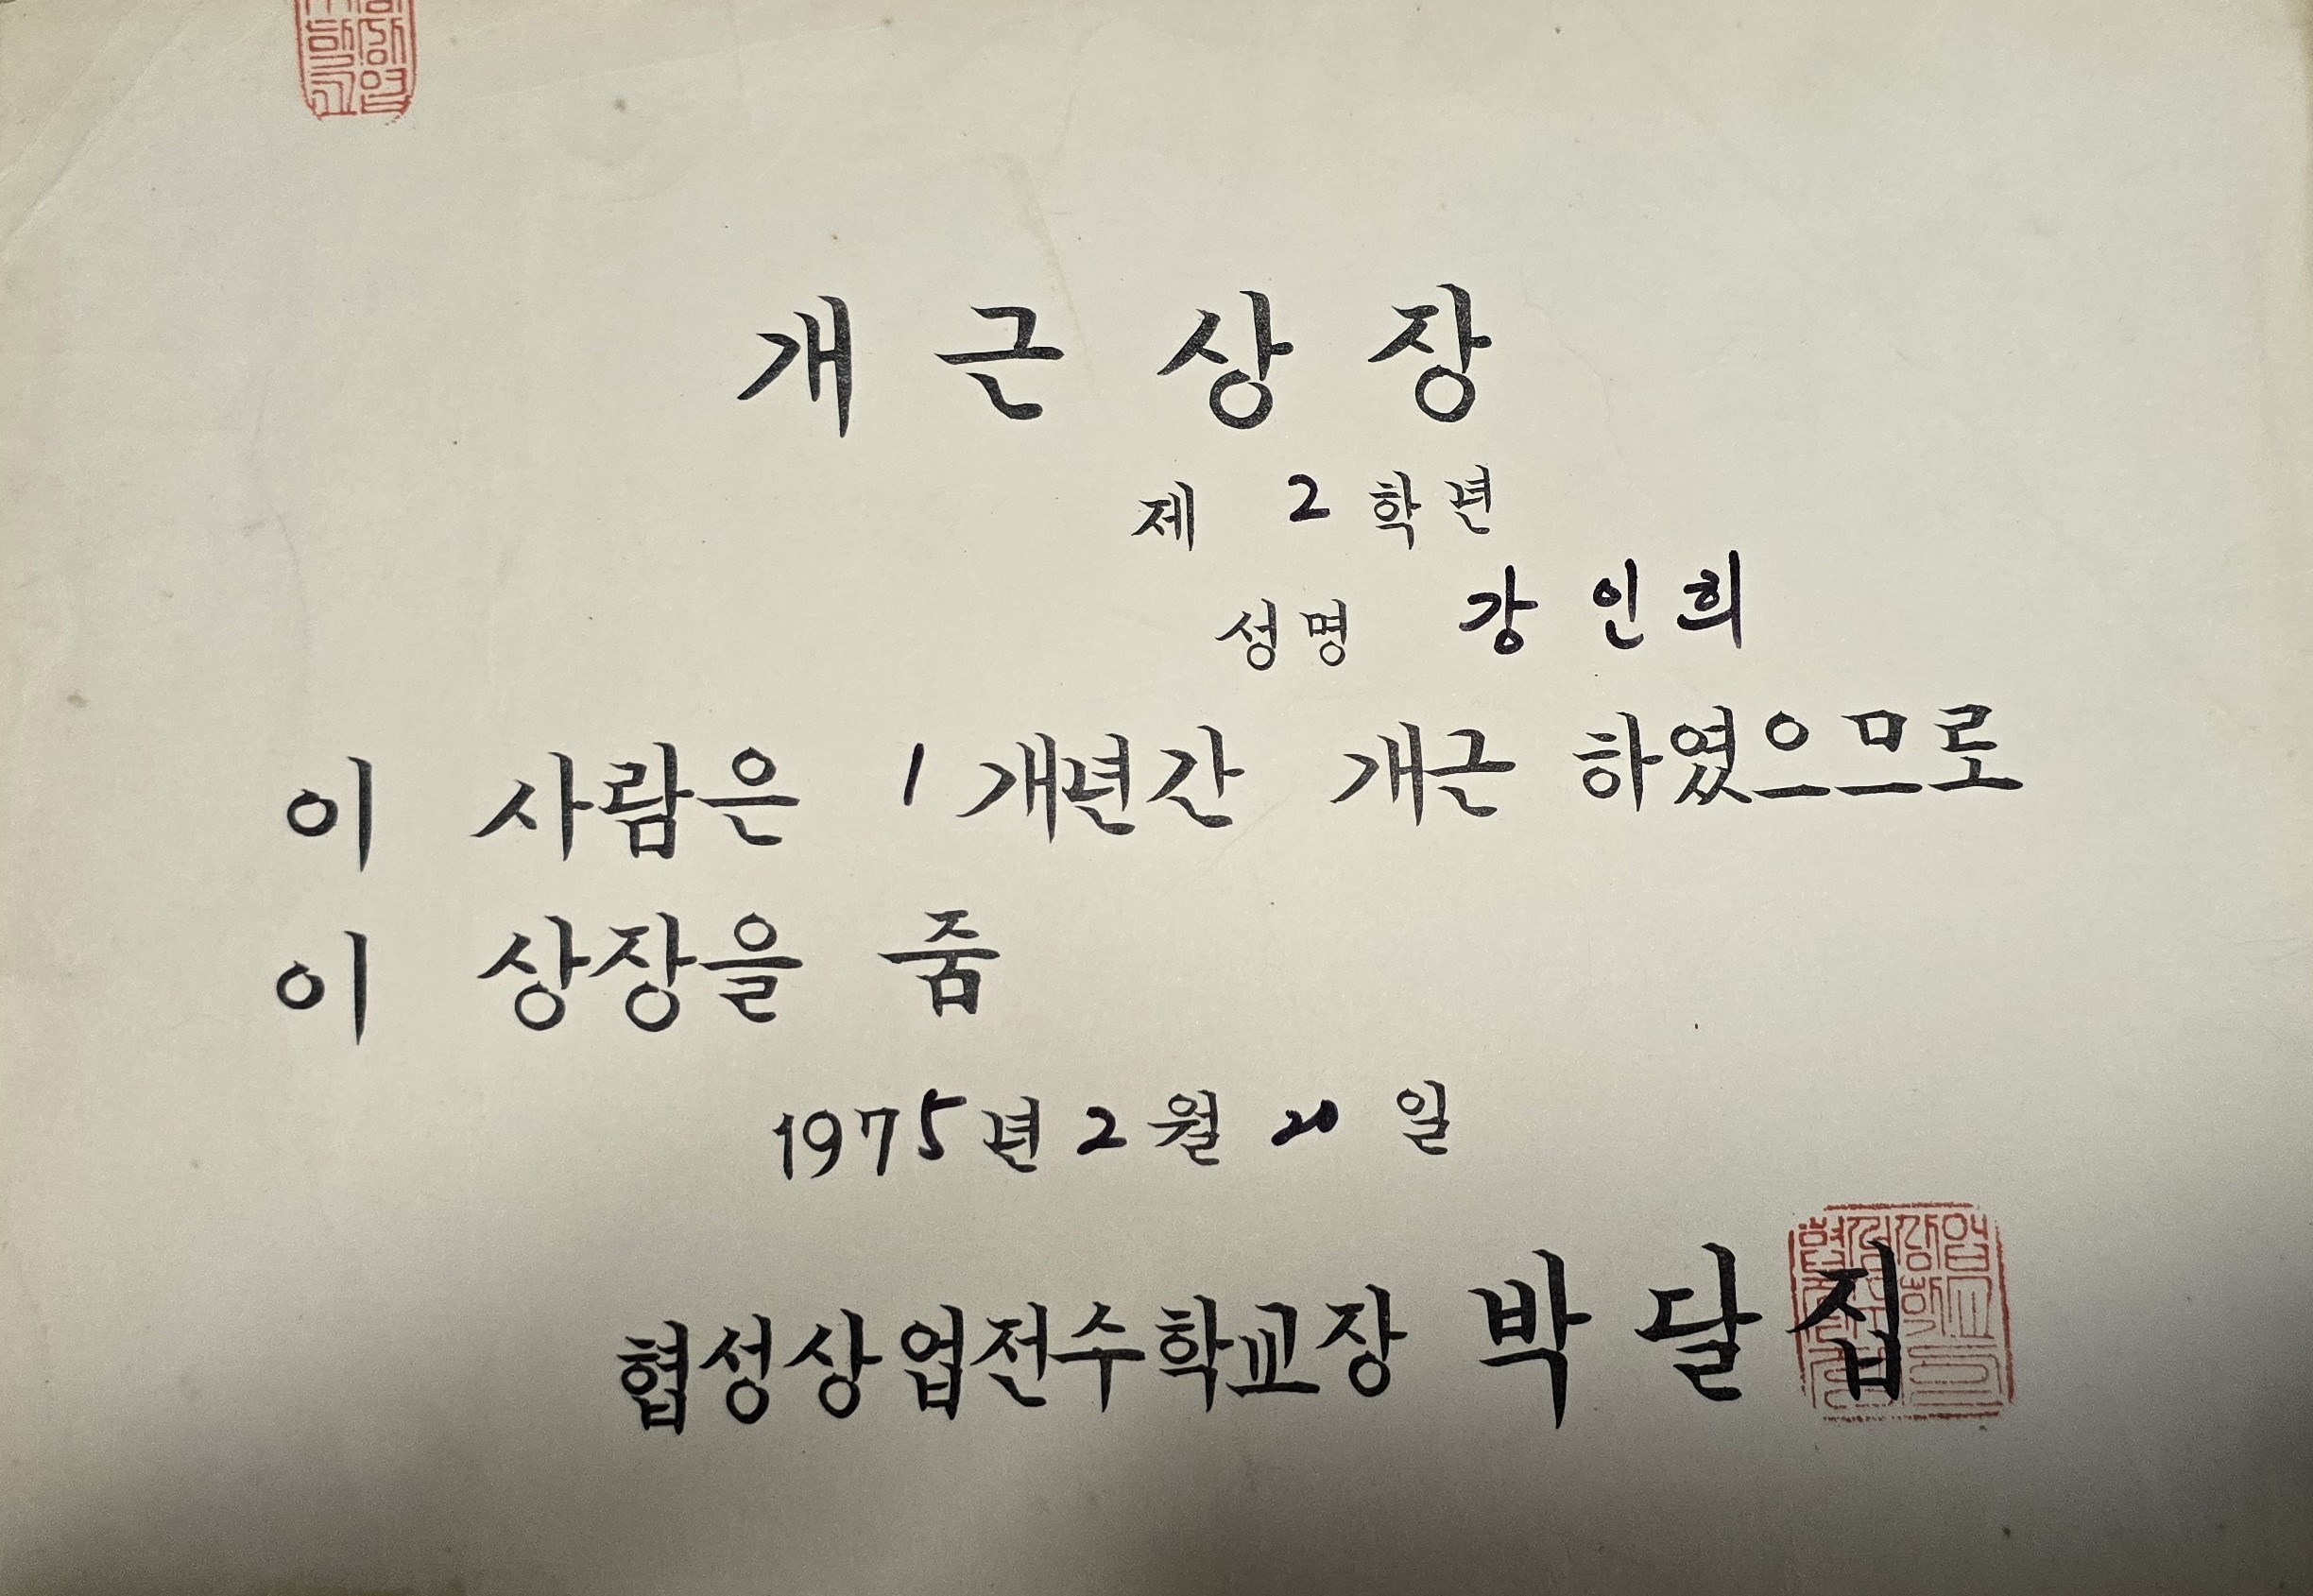 개근상장
제 2 학년
성명 강인희
이 사람은 1 개년간 개근 하였으므로
이 상장을 줌
1975년 2월 20일
협성상업전수학교장 박달집